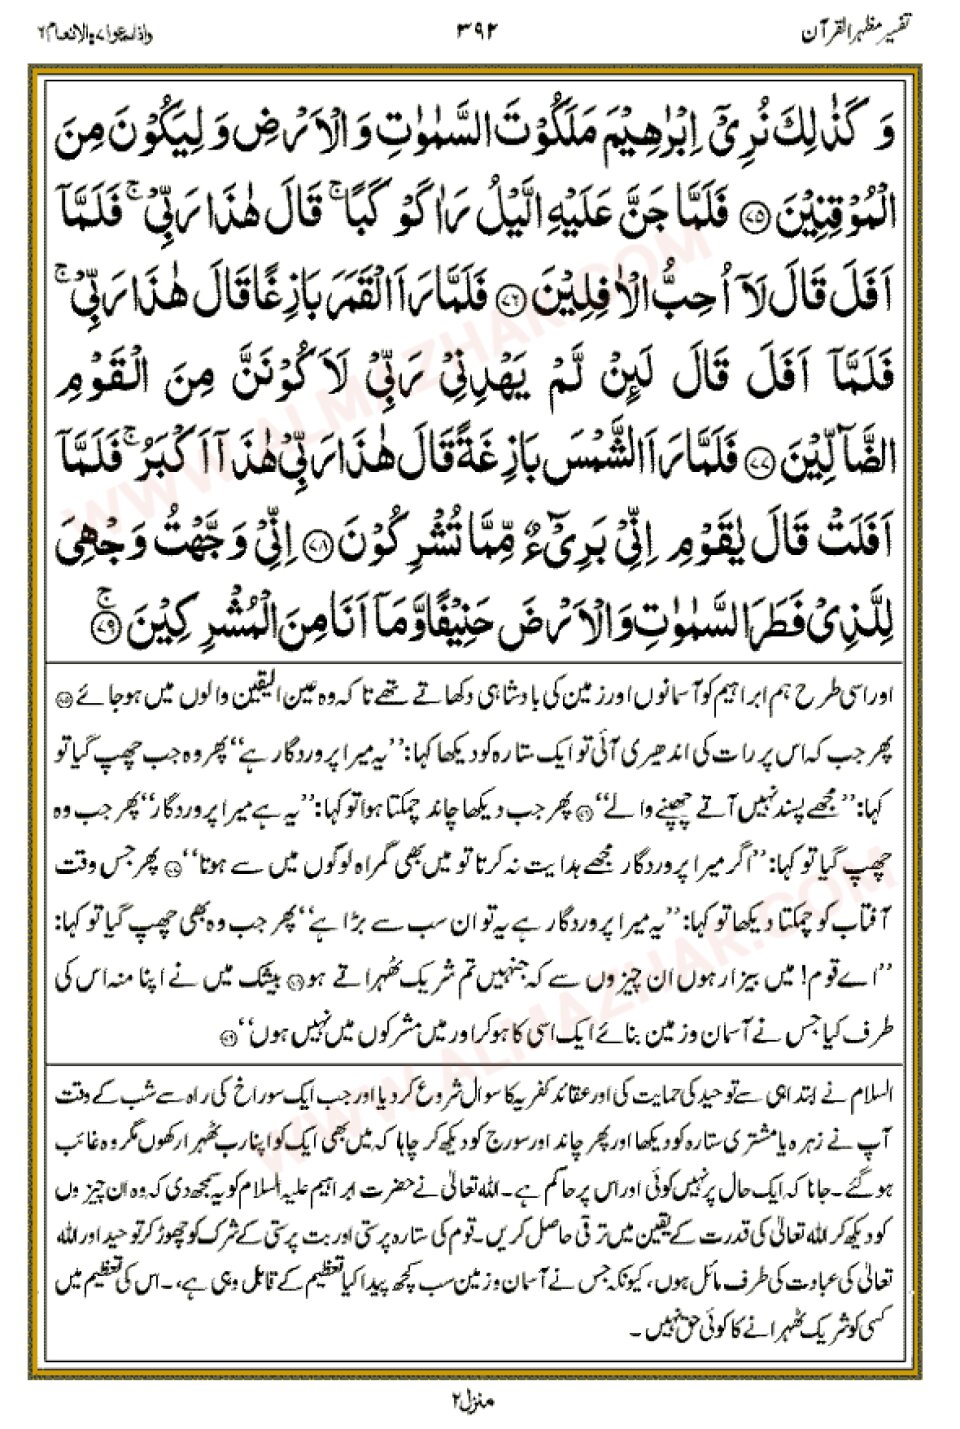 تفسیر مظہر القرآن ۳۹۲ واذاسمعوا ۷ الانعام ۶
وَ كَذٰلِكَ نُرِیْۤ اِبْرٰهِیْمَ مَلَكُوْتَ السَّمٰوٰتِ وَ الْاَرْضِ وَ لِیَكُوْنَ مِنَ
الْمُوْقِنِیْنَ ﴿۷۵﴾ فَلَمَّا جَنَّ عَلَیْهِ الَّیْلُ رَاٰ كَوْكَبًا ۚ قَالَ هٰذَا رَبِّیْ ۚ فَلَمَّاۤ
اَفَلَ قَالَ لَاۤ اُحِبُّ الْاٰفِلِیْنَ ﴿۷۶﴾ فَلَمَّا رَاَ الْقَمَرَ بَازِغًا قَالَ هٰذَا رَبِّیْ ۚ
فَلَمَّاۤ اَفَلَ قَالَ لَىِٕنْ لَّمْ یَهْدِنِیْ رَبِّیْ لَاَكُوْنَنَّ مِنَ الْقَوْمِ
الضَّآلِّیْنَ ﴿۷۷﴾ فَلَمَّا رَاَ الشَّمْسَ بَازِغَةً قَالَ هٰذَا رَبِّیْ هٰذَاۤ اَكْبَرُ ۚ فَلَمَّاۤ
اَفَلَتْ قَالَ یٰقَوْمِ اِنِّیْ بَرِیْٓءٌ مِّمَّا تُشْرِكُوْنَ ﴿۷۸﴾ اِنِّیْ وَجَّهْتُ وَجْهِیَ
لِلَّذِیْ فَطَرَ السَّمٰوٰتِ وَ الْاَرْضَ حَنِیْفًا وَّ مَاۤ اَنَا مِنَ الْمُشْرِكِیْنَ ﴿۷۹﴾ ۚ
اور اسی طرح ہم ابراہیم کو آسمانوں اور زمین کی بادشاہی دکھاتے تھے تاکہ وہ عین الیقین والوں میں ہوجائے ﴿۷۵﴾
پھر جب کہ اس پر رات کی اندھیری آئی تو ایک ستارہ کو دیکھا کہا: ’’یہ میرا پروردگار ہے‘‘ پھر وہ جب چھپ گیا تو
کہا: ’’مجھے پسند نہیں آتے چھپنے والے‘‘ ﴿۷۶﴾ پھر جب دیکھا چاند چمکتا ہوا تو کہا: ’’یہ ہے میرا پروردگار‘‘ پھر جب وہ
چھپ گیا تو کہا: ’’اگر میرا پروردگار مجھے ہدایت نہ کرتا تو میں بھی گمراہ لوگوں میں سے ہوتا‘‘ ﴿۷۷﴾ پھر جس وقت
آفتاب کو چمکتا دیکھا تو کہا: ’’یہ میرا پروردگار ہے یہ تو ان سب سے بڑا ہے‘‘ پھر جب وہ بھی چھپ گیا تو کہا:
’’اے قوم! میں بیزار ہوں ان چیزوں سے کہ جنہیں تم شریک ٹھہراتے ہو ﴿۷۸﴾ بیشک میں نے اپنا منہ اس کی
طرف کیا جس نے آسمان و زمین بنائے ایک اسی کا ہوکر اور میں مشرکوں میں نہیں ہوں‘‘ ﴿۷۹﴾
السلام نے ابتدا ہی سے توحید کی حمایت کی اور عقائد کفریہ کا سوال شروع کردیا اور جب ایک سوراخ کی راہ سے شب کے وقت
آپ نے زہرہ یا مشتری ستارہ کو دیکھا اور پھر چاند اور سورج کو دیکھ کر چاہا کہ میں بھی ایک کو اپنا رب ٹھہرا رکھوں مگر وہ غائب
ہوگئے۔ جانا کہ ایک حال پر نہیں کوئی اور اس پر حاکم ہے۔ اللہ تعالیٰ نے حضرت ابراہیم علیہ السلام کو یہ سمجھ دی کہ وہ ان چیزوں
کو دیکھ کر اللہ تعالیٰ کی قدرت کے یقین میں ترقی حاصل کریں۔ قوم کی ستارہ پرستی اور بت پرستی کے شرک کو چھوڑ کر توحید اور اللہ
تعالیٰ کی عبادت کی طرف مائل ہوں، کیونکہ جس نے آسمان و زمین سب کچھ پیدا کیا تعظیم کے قابل وہی ہے،۔ اس کی تعظیم میں
کسی کو شریک ٹھہرانے کا کوئی حق نہیں۔
منزل۲
WWW.ALMAZHAR.COM
WWW.ALMAZHAR.COM